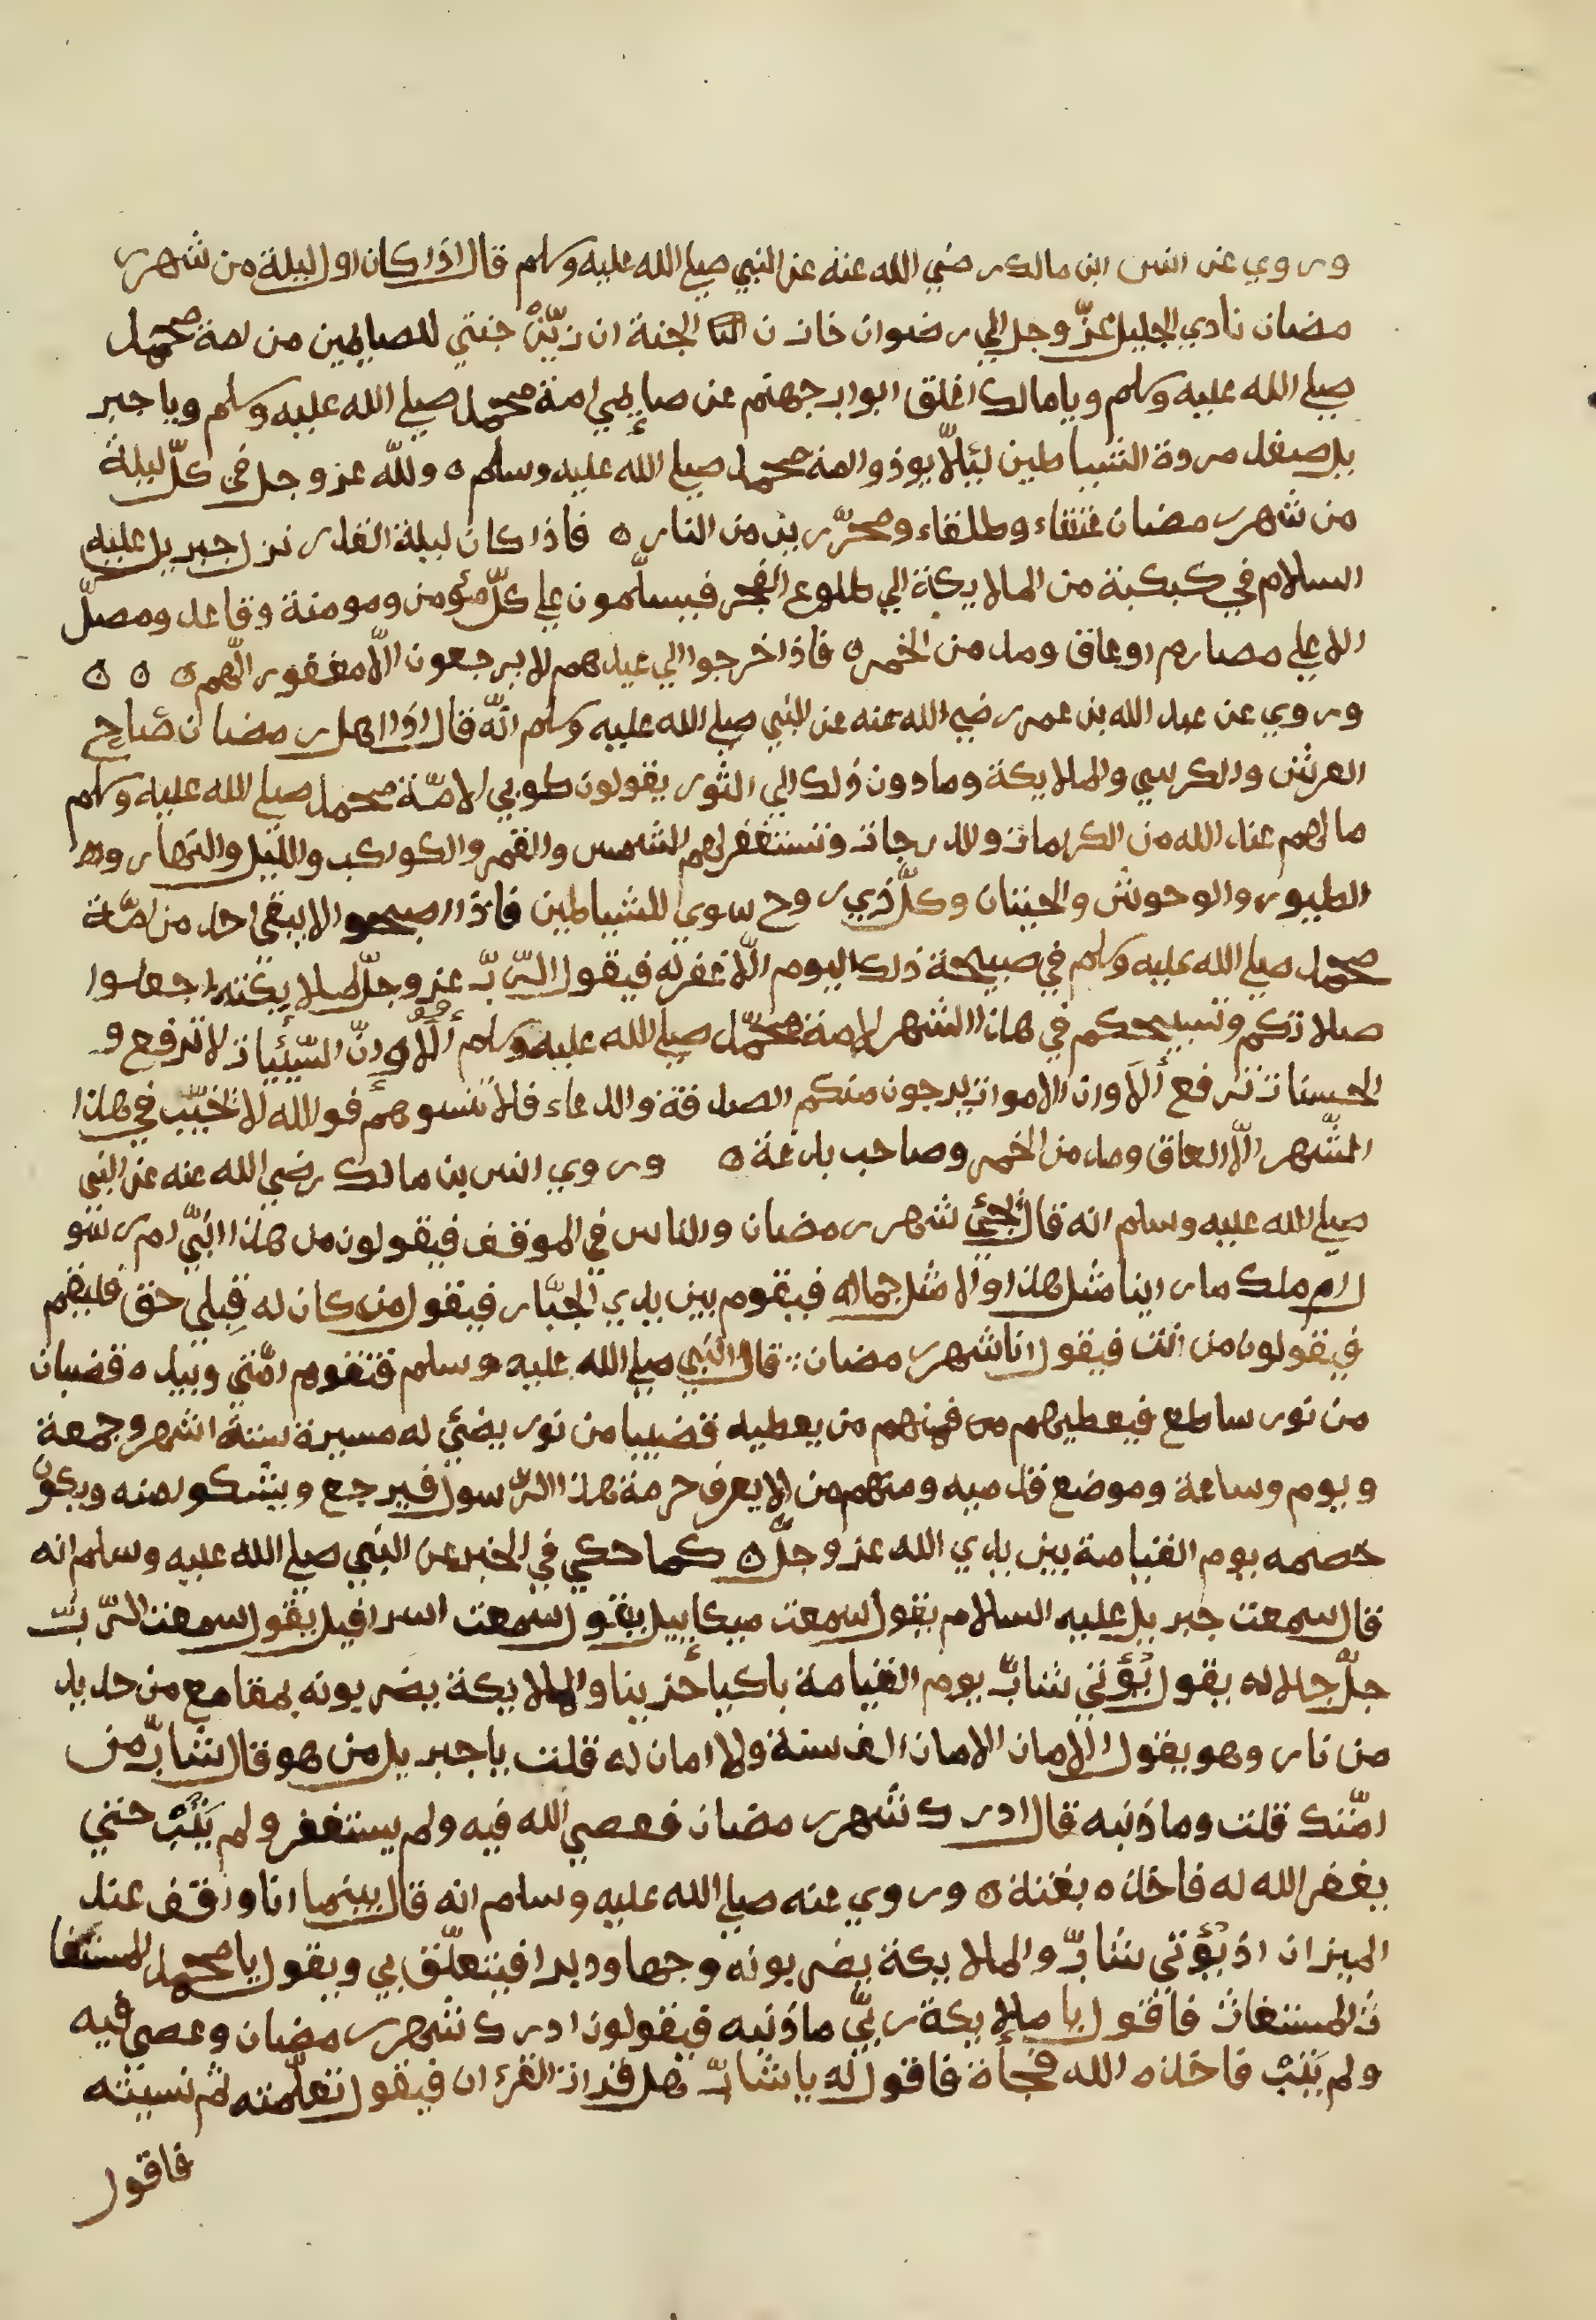 وروي عن انس ابن مالك رضي الله عنه عن النبي صلي الله عليه وسلم قال اذا كان اول ليلة من شهر ر
مضان نادي الجليل عزّ وجل الي رضوان خازن الجنة ان زيّنْ جنتي للصايمين من امة محمد
صلي الله عليه وسلم ويا مالك اغلق ابواب جهنم عن صايمي امة محمد صلي الله عليه وسلم ويا جبر
يل صفد مردة الشياطين لئلّا يوذوا امة محمد صلي الله عليه وسلم ه ولله عز وجل في كلّ ليلة
من شهر رمضان عتقاء وطلقاء ومحرّرين من النار ه فاذا كان ليلة القدر نزل جبريل عليه
السلام في كبكبة من الملايكة الي طلوع الفجر فيسلّمون علي كلّ مؤمن ومومنة وقاعد ومصلّ
الا علي مصارم او عاق ومدمن الخمر ه فاذا خرجوا الي عيدهم لا يرجعون الّا مغفور الهم ه ه ه
وروي عن عبد الله بن عمر رضي الله عنه عن النبي صلي الله عليه وسلم انّه قال اذا اهل رمضان صاح
العرش والكرسي والملايكة وما دون ذلك الي الثور يقولون طوبي لامّة محمد صلي الله عليه وسلم
ما لهم عند الله من الكرامات والدرجات وتستغفر لهم الشمس والقمر والكواكب والليل والنهار وه
الطيور والوحوش والحيتان وكلّ ذي روح سوي للشياطين فاذا اصبحوا لا يبقي احد من امّة
محمد صلي الله عليه وسلم في صبيحة ذلك اليوم الّا غفر له فيقول الرّبّ عز وجلّ لملايكته اجعلوا
صلاتكم وتسبيحكم في هاذا الشهر لامة محمّد صلي الله عليه وسلم ألَا وانّ السّيّئات لا ترفع و
الحسنات ترفع ألَا وان الاموات يرجون منكم الصدقة والدعاء فلا تنسوهم فوالله لا تخيّب في هاذا
الشّهر الّا العاق ومدمن الخمر وصاحب بدعة ه وروي انس بن مالك رضي الله عنه عن النبي
صلي الله عليه وسلم انه قال يجئ شهر رمضان والناس في الموقف فيقولون من هاذا انبّي ام رسو
ل ام ملك ما راينا مثل هاذا ولا مثل جماله فيقوم بين يدي الجبّار فيقول من كان له قِبلي حق فليقم
فيقولون من انت فيقول انا شهر رمضان قال النبي صلي الله عليه وسلم فتقوم امّتي وبيده قضبان
من نور ساطع فيعطيهم فمنهم من يعطيه قضيبا من نور يضئ له مسيرة ستة اشهر وجمعة
ويوم وساعة وموضع قدميه ومنهم من لا يعرف حرمة هاذا الرّسول فيرجع ويشكوا منه ويكون
خصمه يوم القيامة بين يدي الله عز وجلّ ه كما حكي في الخبر عن النبي صلي الله عليه وسلم انه
قال سمعت جبريل عليه السلام يقول سمعت ميكاييل يقول سمعت اسرافيل يقول سمعت الرّبّ
جلّ جلاله يقول يُؤتي بشابّ يوم القيامة باكيا حزينا والملايكة يضربونه بمقامع من حديد
من نار وهو يقول الامان الامان الف سنة ولا امان له قلت يا جبريل من هو قال شابّ من
امّتك قلت وما ذنبه قال ادرك شهر رمضان فعصي الله فيه ولم يستغفر ولم يَتُبْ حتي
يغفر الله له فاخذه بغتة ه وروي عنه صلي الله عليه وسلم انه قال بينما انا واقف عند
الميزان اذ يُؤتي بشابّ والملايكة يضربونه وجها ودبرا فيتعلّق بي ويقول يا محمد المستغا
ث المستغاث فاقول يا ملايكة ربّي ما ذنبه فيقولون ادرك شهر رمضان وعصي فيه
ولم يَتُبْ فاخذه الله فجأة فاقول له يا شابّ هل قرات القرءان فيقول تعلّمته ثم نسيته
فاقول